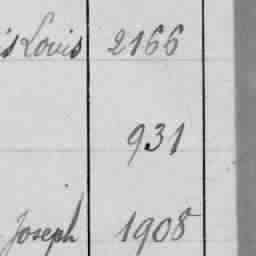 is Louis 2166
931
Joseph 1908